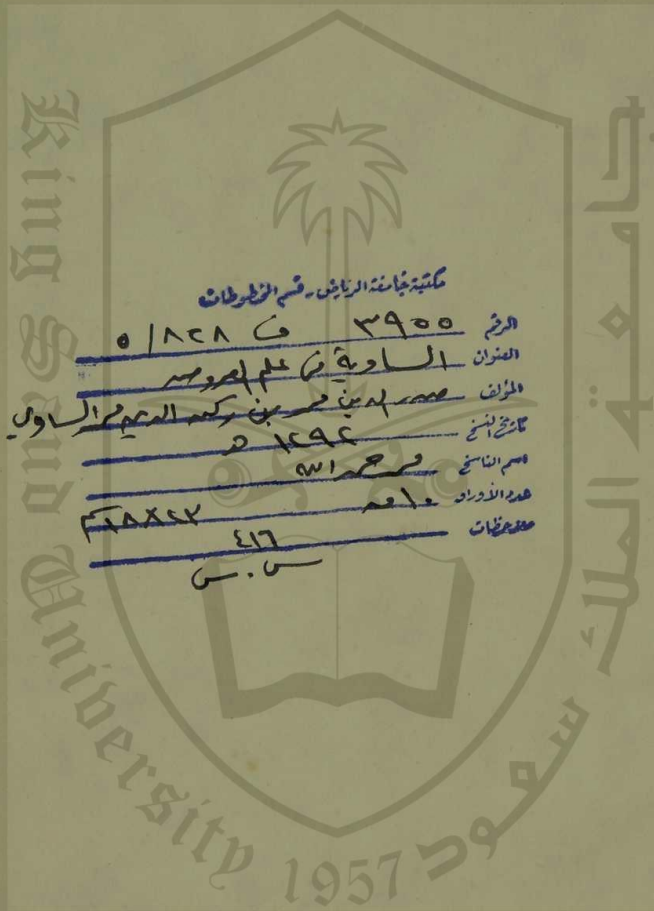 مكتبة جامعة الرياض - قسم المخطوطات
الرقم ٣٩٥٥ ف ٨٢٨ / ٥
العنوان الساوية في علم العروض
المؤلف صدر الدين محمد بن ركن الدين محمد الساوي
تاريخ النسخ ١٢٩٢ هـ
اسم الناسخ محمد حمد الله
عدد الأوراق
ملاحظات ٤١٦
س . س
King Saud University 1957
جامعة الملك سعود